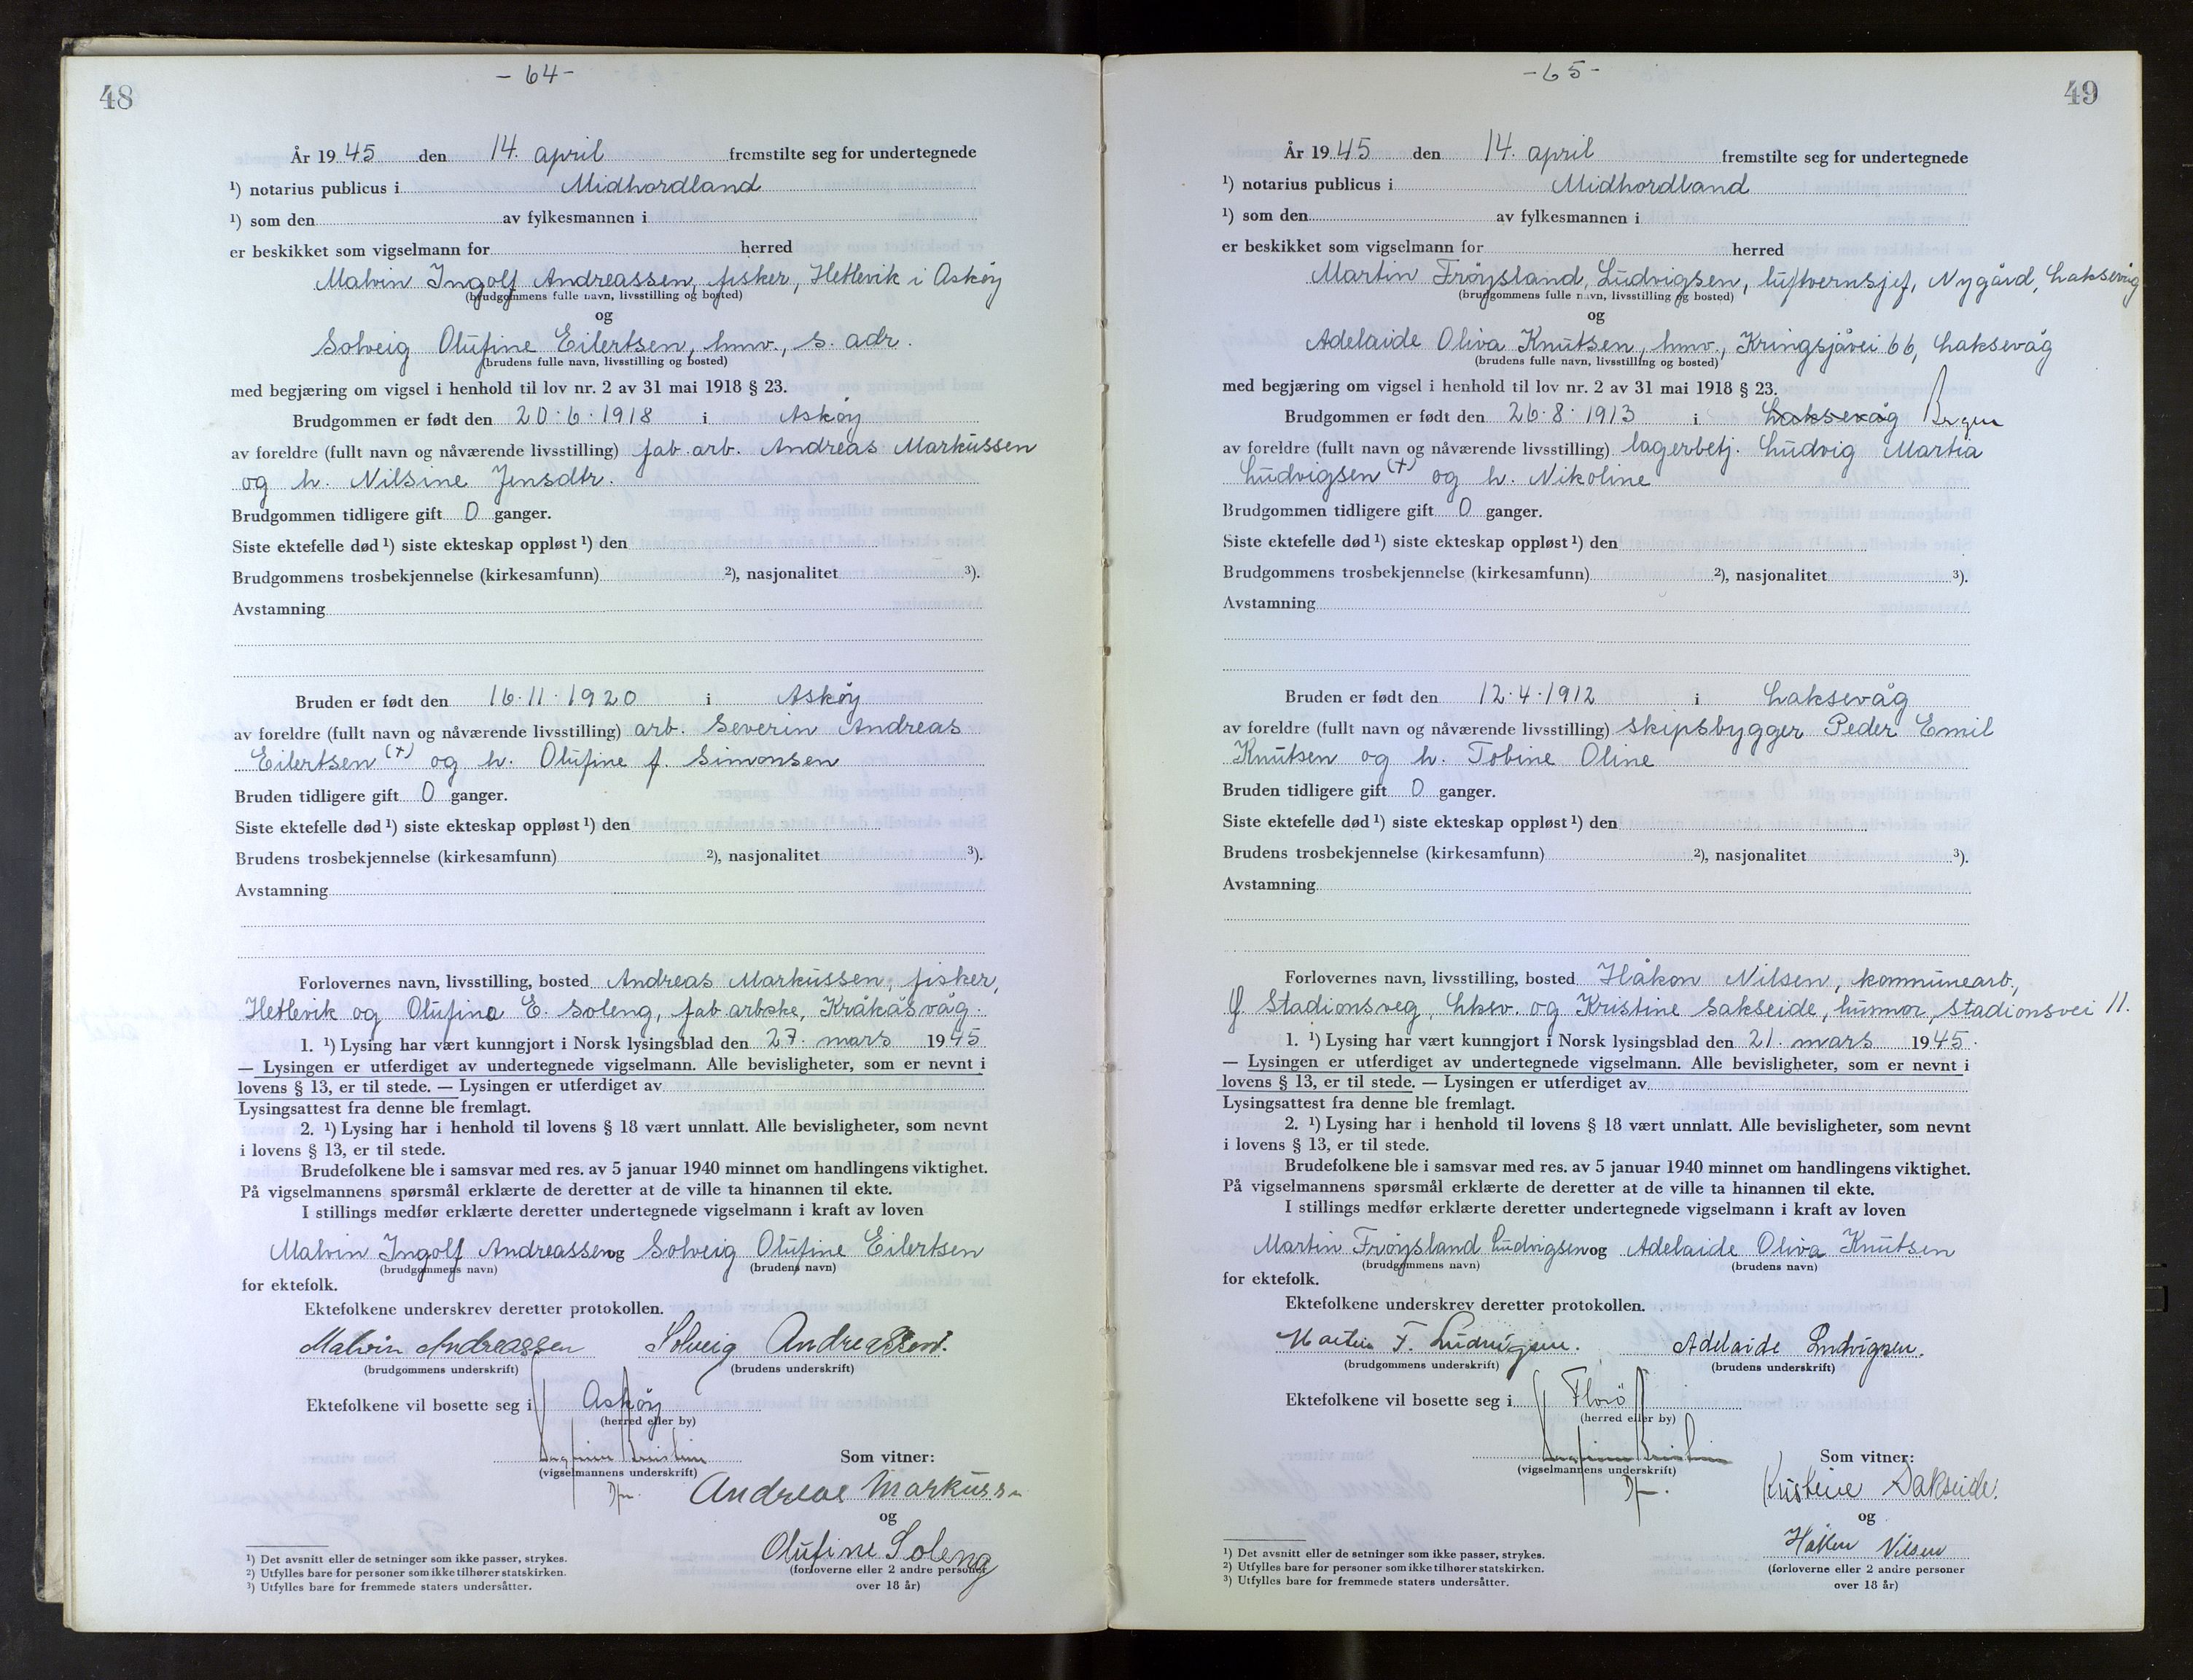 48
- 64 -
År 19 45 den 14. april fremstilte seg for undertegnede
¹) notarius publicus i Midhordland
¹) som den av fylkesmannen i
er beskikket som vigselmann for herred
Malvin Ingolf Andreassen, fisker, Hetlevik i Askøy
(brudgommens fulle navn, livsstilling og bosted)
og
Solveig Olufine Eilertsen, hmv., s. adr.
(brudens fulle navn, livsstilling og bosted)
med begjæring om vigsel i henhold til lov nr. 2 av 31 mai 1918 § 23.
Brudgommen er født den 20.6.1918 i Askøy
av foreldre (fullt navn og nåværende livsstilling) fab.arb. Andreas Markussen
og h. Nilsine Jensdtr.
Brudgommen tidligere gift 0 ganger.
Siste ektefelle død ¹) siste ekteskap oppløst ¹) den
Brudgommens trosbekjennelse (kirkesamfunn) ²), nasjonalitet ³).
Avstamning
Bruden er født den 16.11.1920 i Askøy
av foreldre (fullt navn og nåværende livsstilling) arb. Severin Andreas
Eilertsen (+) og h. Olufine f. Simonsen
Bruden tidligere gift 0 ganger.
Siste ektefelle død ¹) siste ekteskap oppløst ¹) den
Brudens trosbekjennelse (kirkesamfunn) ²), nasjonalitet ³).
Avstamning
Forlovernes navn, livsstilling, bosted Andreas Markussen, fisker,
Hetlevik og Olufine E. Soleng, fab.arbske, Kråkåsvåg.
1. ¹) Lysing har vært kunngjort i Norsk lysingsblad den 27. mars 1945
— Lysingen er utferdiget av undertegnede vigselmann. Alle bevisligheter, som er nevnt i
lovens § 13, er til stede. — Lysingen er utferdiget av
Lysingsattest fra denne ble fremlagt.
2. ¹) Lysing har i henhold til lovens § 18 vært unnlatt. Alle bevisligheter, som nevnt
i lovens § 13, er til stede.
Brudefolkene ble i samsvar med res. av 5 januar 1940 minnet om handlingens viktighet.
På vigselmannens spørsmål erklærte de deretter at de ville ta hinannen til ekte.
I stillings medfør erklærte deretter undertegnede vigselmann i kraft av loven
Malvin Ingolf Andreassen og Solveig Olufine Eilertsen
(brudgommens navn) (brudens navn)
for ektefolk.
Ektefolkene underskrev deretter protokollen.
Malvin Andreassen Solveig Andreassen.
(brudgommens underskrift) (brudens underskrift)
Ektefolkene vil bosette seg i Askøy
(herred eller by)
Som vitner:
(vigselmannens underskrift)
Andreas Markussn
og
Olufine Soleng
(forloverne eller 2 andre personer
over 18 år)
¹) Det avsnitt eller de setninger som ikke passer, strykes.
²) Utfylles bare for personer som ikke tilhører statskirken.
³) Utfylles bare for fremmede staters undersåtter.
49
- 65 -
År 19 45 den 14. april fremstilte seg for undertegnede
¹) notarius publicus i Midhordland
¹) som den av fylkesmannen i
er beskikket som vigselmann for herred
Martin Frøysland Ludvigsen, luftvernsjef, Nygård, Laksevåg
(brudgommens fulle navn, livsstilling og bosted)
og
Adelaide Oliva Knutsen, hmv., Kringsjåvei 66, Laksevåg
(brudens fulle navn, livsstilling og bosted)
med begjæring om vigsel i henhold til lov nr. 2 av 31 mai 1918 § 23.
Brudgommen er født den 26.8.1913 i Laksevåg Bergen
av foreldre (fullt navn og nåværende livsstilling) lagerbetj. Ludvig Martia
Ludvigsen (+) og h. Nikoline
Brudgommen tidligere gift 0 ganger.
Siste ektefelle død ¹) siste ekteskap oppløst ¹) den
Brudgommens trosbekjennelse (kirkesamfunn) ²), nasjonalitet ³).
Avstamning
Bruden er født den 12.4.1912 i Laksevåg
av foreldre (fullt navn og nåværende livsstilling) skipsbygger Peder Emil
Knutsen og h. Tobine Oline
Bruden tidligere gift 0 ganger.
Siste ektefelle død ¹) siste ekteskap oppløst ¹) den
Brudens trosbekjennelse (kirkesamfunn) ²), nasjonalitet ³).
Avstamning
Forlovernes navn, livsstilling, bosted Håkon Nilsen, kommunearb.,
Stadionsveg, Lksv. og Kristine Sakseide, husmor, Stadionsvei 11.
1. ¹) Lysing har vært kunngjort i Norsk lysingsblad den 21. mars 1945.
— Lysingen er utferdiget av undertegnede vigselmann. Alle bevisligheter, som er nevnt i
lovens § 13, er til stede. — Lysingen er utferdiget av
Lysingsattest fra denne ble fremlagt.
2. ¹) Lysing har i henhold til lovens § 18 vært unnlatt. Alle bevisligheter, som nevnt
i lovens § 13, er til stede.
Brudefolkene ble i samsvar med res. av 5 januar 1940 minnet om handlingens viktighet.
På vigselmannens spørsmål erklærte de deretter at de ville ta hinannen til ekte.
I stillings medfør erklærte deretter undertegnede vigselmann i kraft av loven
Martin Frøysland Ludvigsen og Adelaide Oliva Knutsen
(brudgommens navn) (brudens navn)
for ektefolk.
Ektefolkene underskrev deretter protokollen.
Martin F. Ludvigsen. Adelaide Ludvigsen.
(brudgommens underskrift) (brudens underskrift)
Ektefolkene vil bosette seg i Florö
(herred eller by)
Som vitner:
(vigselmannens underskrift)
Kristine Sakseide.
og
Håkon Nilsen
(forloverne eller 2 andre personer
over 18 år)
¹) Det avsnitt eller de setninger som ikke passer, strykes.
²) Utfylles bare for personer som ikke tilhører statskirken.
³) Utfylles bare for fremmede staters undersåtter.